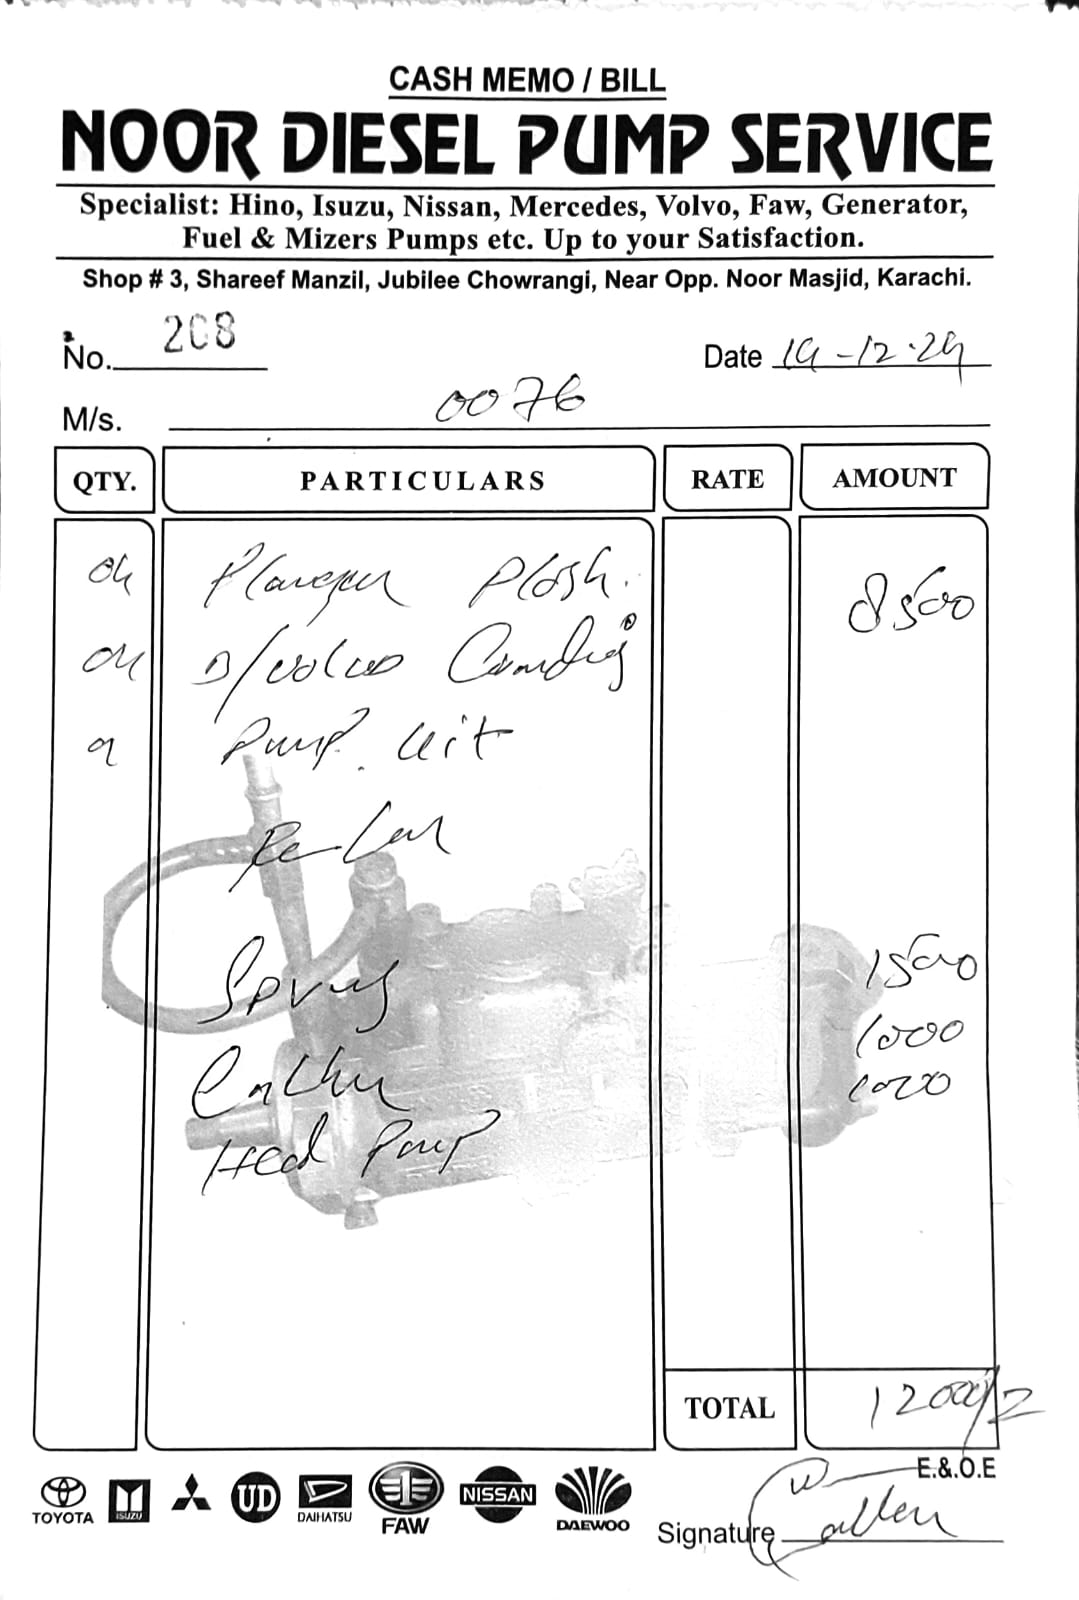 CASH MEMO / BILL
NOOR DIESEL PUMP SERVICE
Specialist: Hino, Isuzu, Nissan, Mercedes, Volvo, Faw, Generator,
Fuel & Mizers Pumps etc. Up to your Satisfaction.
Shop # 3, Shareef Manzil, Jubilee Chowrangi, Near Opp. Noor Masjid, Karachi.
No. 208
Date 19-12-24
M/s. 0076
QTY. PARTICULARS RATE AMOUNT
8500
D/volve
Pump kit
1500
1000
Head Pump 1000
TOTAL 12000/2
E.&.O.E
TOYOTA ISUZU UD DAIHATSU FAW NISSAN DAEWOO
Signature